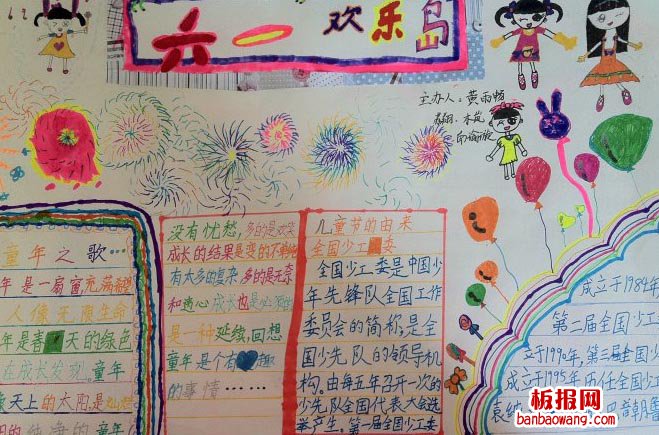 六一欢乐岛
主办人：黄雨畅
童年之歌…
年是一扇窗,充满
人像无原生命
年是春天的绿色
在成长发现。童年
像天上的太阳是灿烂
没有忧愁,多的是欢笑
成长的结果是变的不单纯
有太多的复杂,多的是无奈
和违心成长也是必须的
是一种延续,回想
童年是个有趣
的事情……
儿童节的由来
全国少工委
全国少工委是中国少
年先锋队全国工作
委员会的简称,是全
国少先队的领导机
构。由每五年召开一次的
少先队全国代表大会选
举产生。第一届全国少工委
成立于1984年,
第二届全国少工
立于1990年,第三届全国
成立于1995年历任全国少工
袁纯
板报网
banbaowang.com